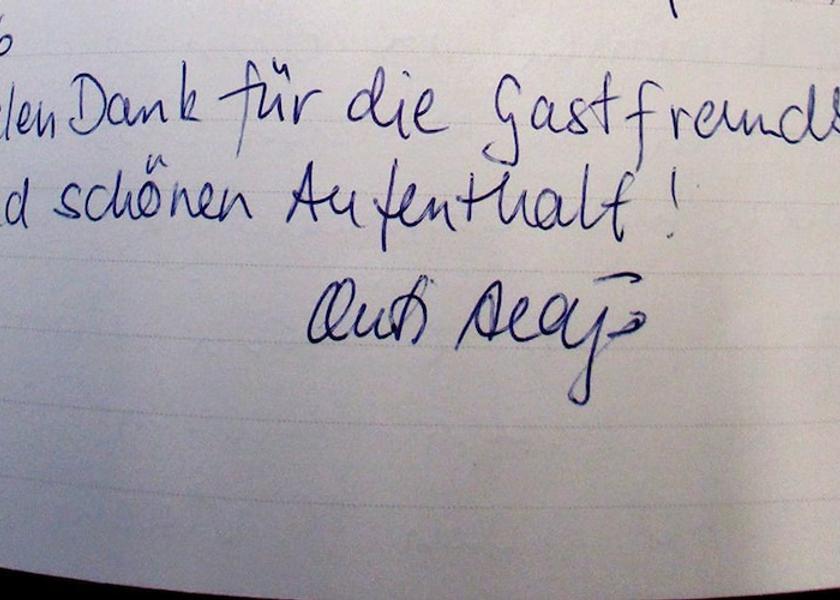 6
len Dank für die Gastfreunds
d schönen Aufenthalt!